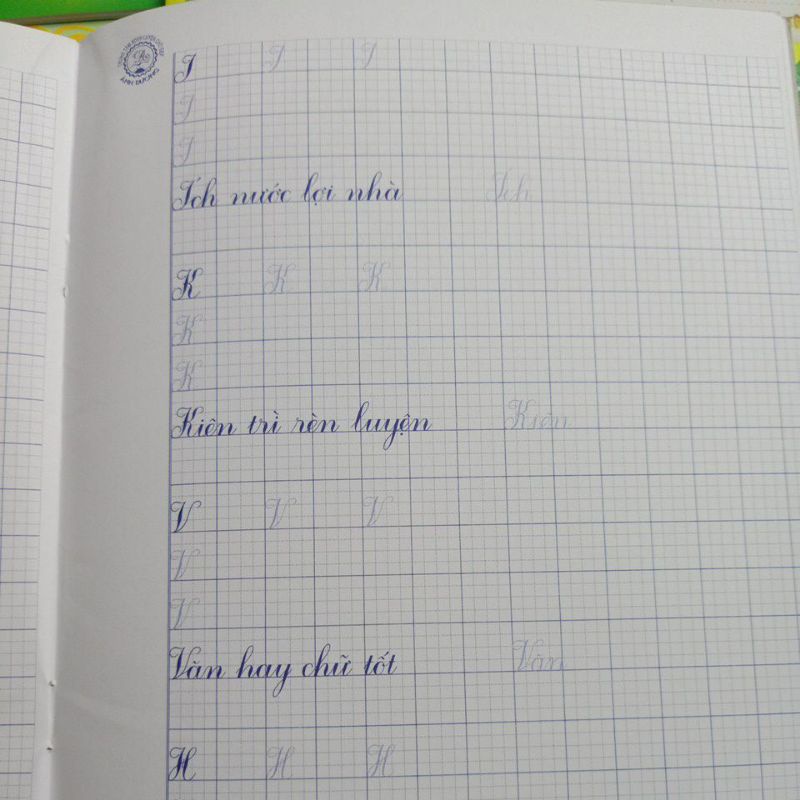 ÁNH DƯƠNG
I I I
I
I
Ích nước lợi nhà Ích
K K K
K
K
Kiên trì rèn luyện Kiên
V V V
V
V
Văn hay chữ tốt Văn
H H H